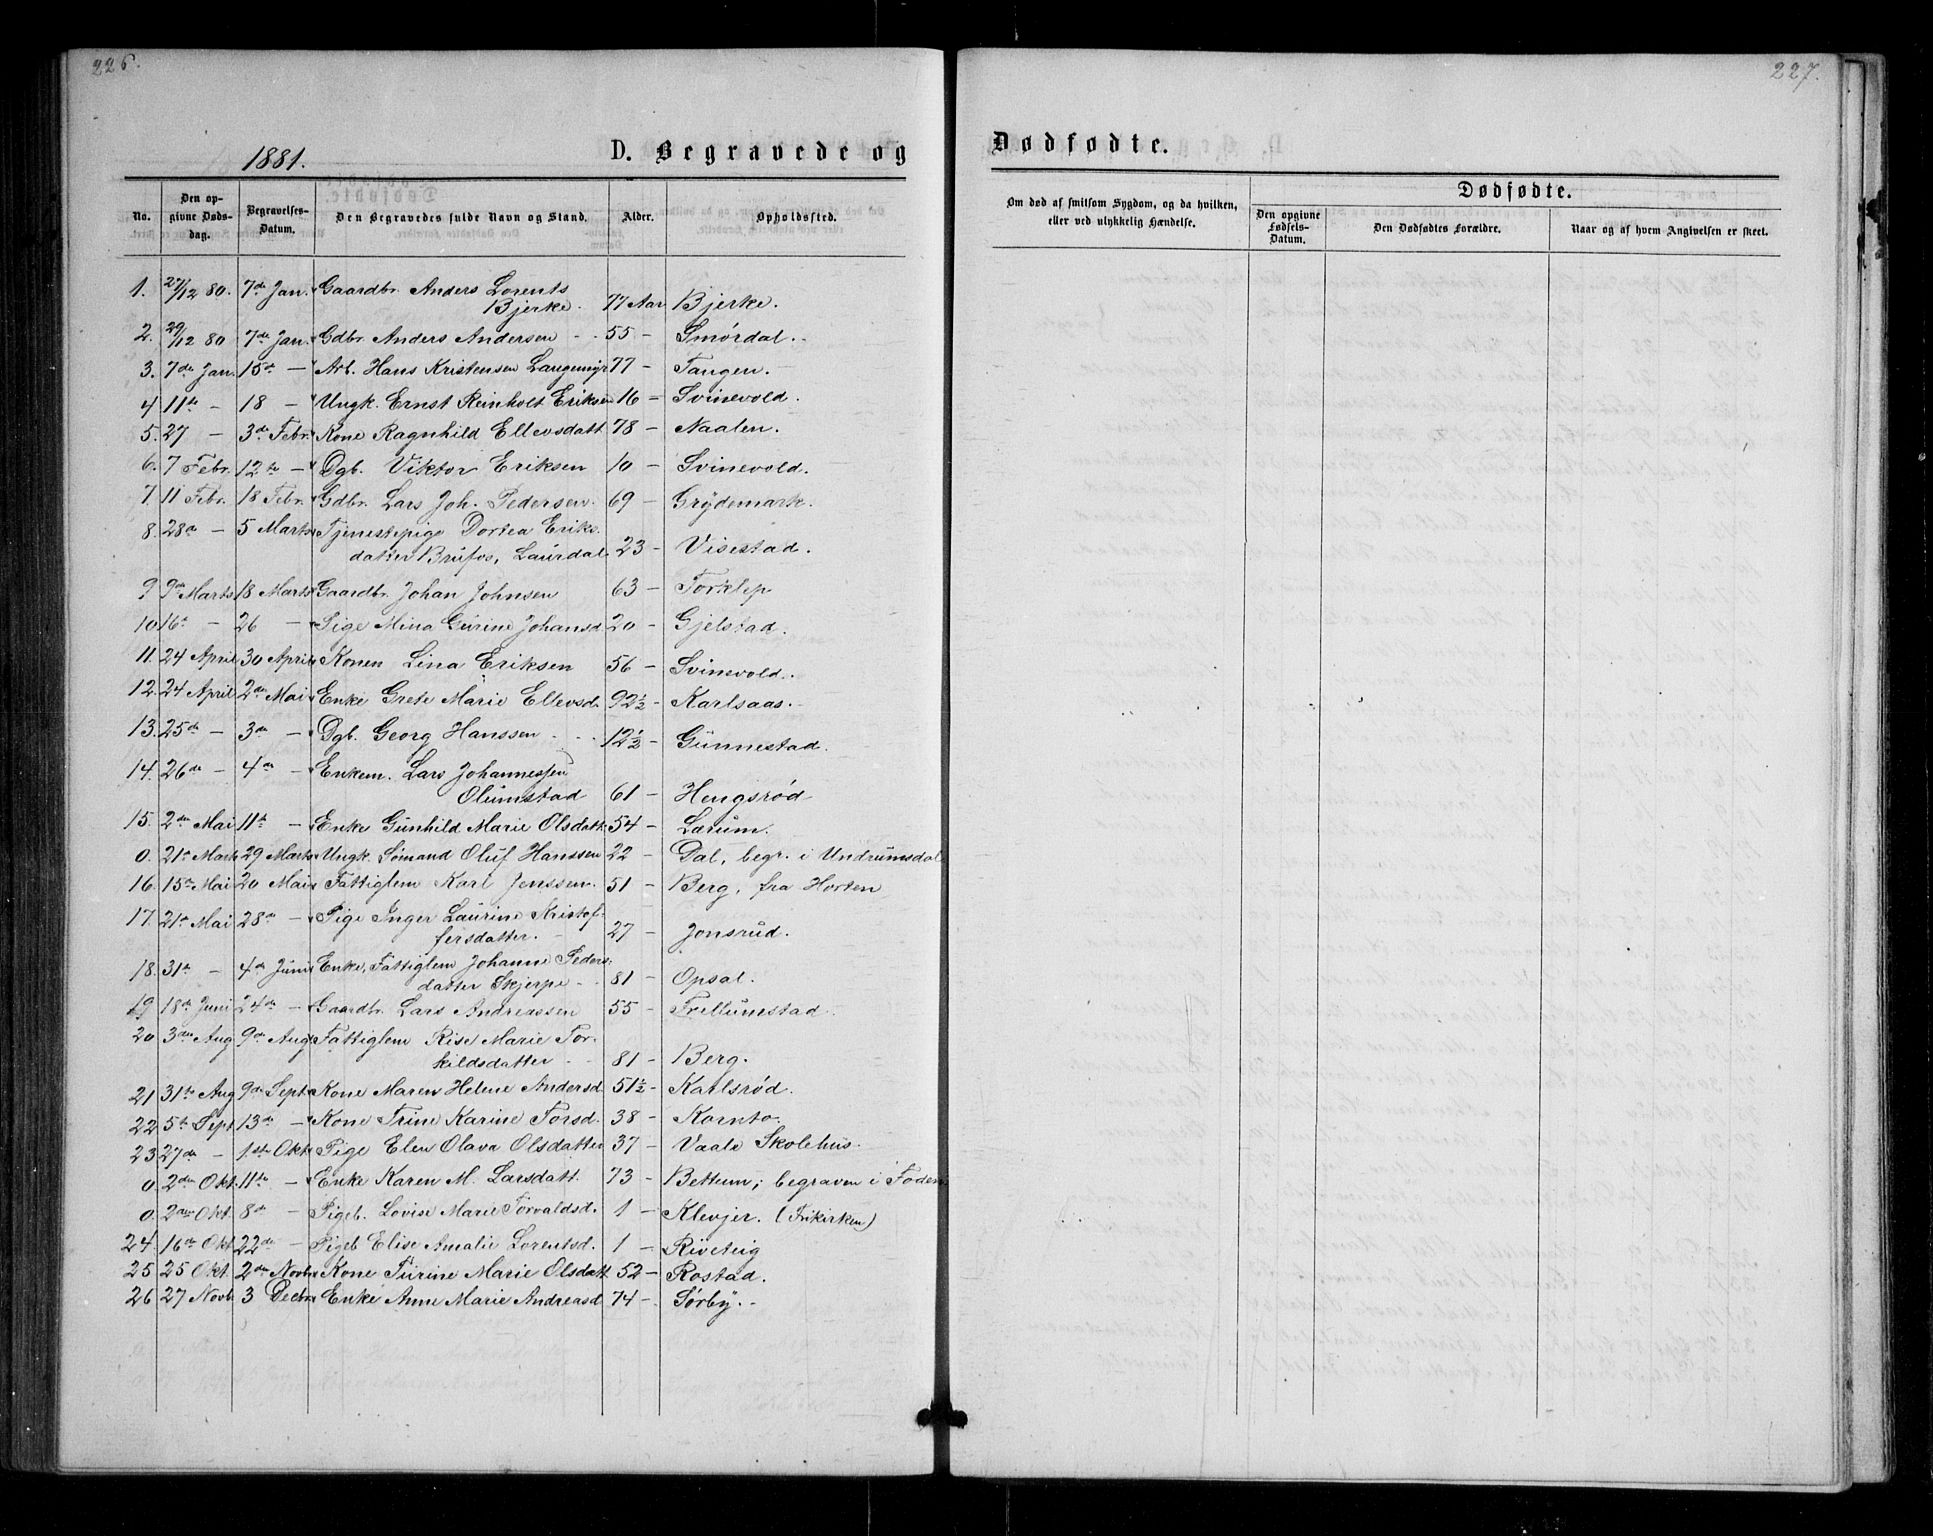 226.
1881.
D. Begravede og
No.
Den opgivne Dødsdag.
Begravelses-Datum.
Den Begravedes fulde Navn og Stand.
Alder.
Opholdssted.
1. 27/12 80. 7de Jan. Gaardbr. Anders Lorents
Bjerke. 77 Aar Bjerke.
2. 29/12 80 7de Jan. Gdbr. Anders Andersen - - 55 - Smørdal. -
3. 7de Jan. 15de - Arb. Hans Kristensen Langemyr 77 - Tangen.
4 11te - 18 - Ungk. Ernst Reinholt Eriksen 16 - Svinevold.
5. 27 - 3de Febr. Kone Ragnhild Ellevsdatt. 78 - Naalen.
6. 7 Febr. 12te - Dgb. Viktor Eriksen 10 - Svinevold.
7. 11 Febr. 18 Febr. Gdbr. Lars Joh. Pedersen. 69 - Grydemark.
8. 28de - 5 Marts Tjenestepige Dortea Eriks-
datter Brufos, Laurdal. 23 - Visestad.
9 9de Marts 18 Marts Gaardbr. Johan Johnsen 63 - Torklep
10 16de - 26 - Pige Mina Gurine Johansd. 20 - Gjelstad.
11. 24 April 30 April Konen Lina Eriksen 56 - Svinevold.
12. 24 April 2de Mai Enke Grete Marie Ellevsd. 92½ - Karlsaas. -
13. 25de - 3de - Dgb. Georg Hanssen - - - 12½ - Gunnestad.
14. 26de - 4de - Enkem. Lars Johannessen
Olumstad 61 - Hengsrød
15. 2den Mai 11te - Enke Gunhild Marie Olsdatt. 54 - Lærum.
0. 21de Marts 29 Marts Ungk. Sømand Oluf Hanssen 22 - Dal, begr. i Undrumsdal
16. 15de Mai 20 Mai Fattiglem Karl Jenssen. 51 - Berg, fra Horten
17. 21de Mai 28de - Pige Inger Laurine Kristof-
fersdatter. - 27 - Jonsrud.
18. 31te - 4de Juni Enke, Fattiglem Johanne Peders-
datter Skjerpe - - 81 - Opsal.
19 18de Juni 24de - Gaardbr. Lars Andreassen 55 - Trellumstad
20 3die Aug 9de Aug Fattiglem Rise Marie Tor-
kildsdatter - - 81 - Berg.
21 31te Aug 9de Sept. Kone Maren Helene Andersd. 51½ - Karlsrød.
22 5te Sept 13de - Kone Trine Karine Torsd. 38 - Kornto.
23 27de - 1ste Okt. Pige Elen Olava Olsdatter 37 - Vaale Skolehus.
0. 2den Okt. 11te - Enke Karen M. Larsdatt. 73 - Bettum; begraven i Foden
0. 2den Okt. 8de - Pigeb. Lovise Marie Torvaldsd. 1 - Klevjer. (Frikirken)
24. 16de Okt 22de - Pigeb Elise Amalie Lorentsd. 1 - Riveteig
25 25 Okt. 2den Novbr. Kone Turine Marie Olsdatt 52 - Rostad.
26 27 Novb. 3 Decbr. Enke Anne Marie Andreasd 74 - Sørby. -
227.
Dødfødte.
Om død af smitsom Sygdom, og da hvilken,
eller ved ulykkelig Hændelse.
Dødfødte.
Den opgivne
Fødsels-
Datum.
Den Dødfødtes Forældre.
Naar og af hvem Angivelsen er skeet.